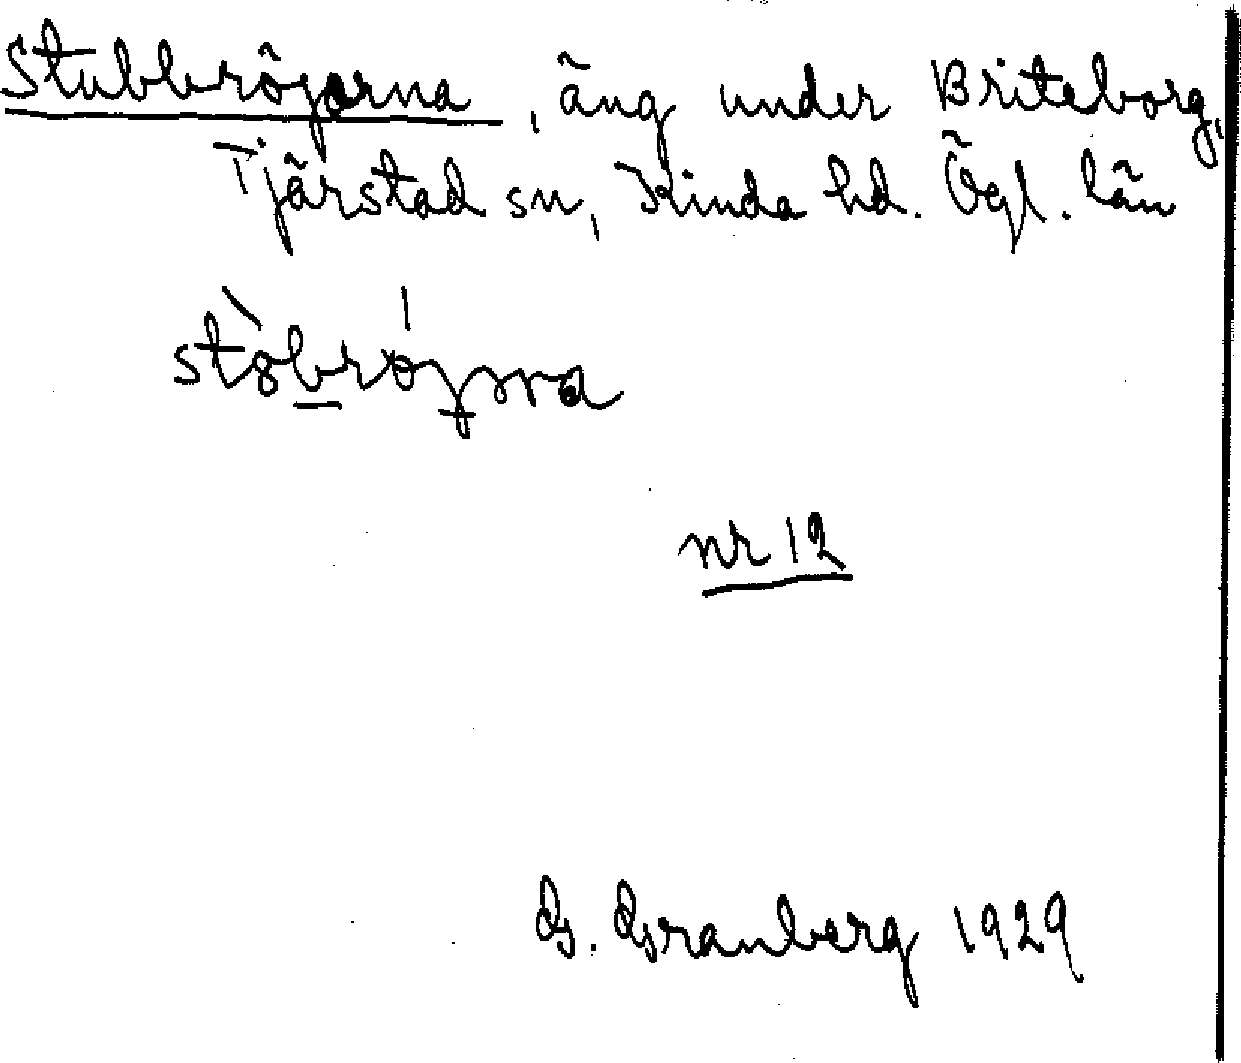 Stubbröjorna, äng under Briteborg,
Tjärstad sn, Kinda hd. Ögl. län
nr 12
G. Granberg 1929